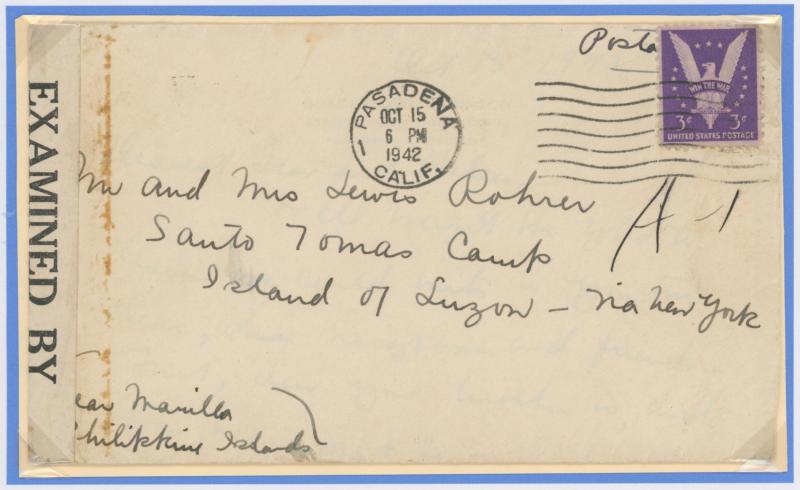 EXAMINED BY
Posta
PASADENA
OCT 15
6 PM
1942
1
CALIF.
WIN THE WAR
3¢ 3¢
UNITED STATES POSTAGE
Mr and Mrs Lewis Rohrer
A-1
Santo Tomas Camp
Island of Luzon – Via New York
ear Manilla
Philippine Islands